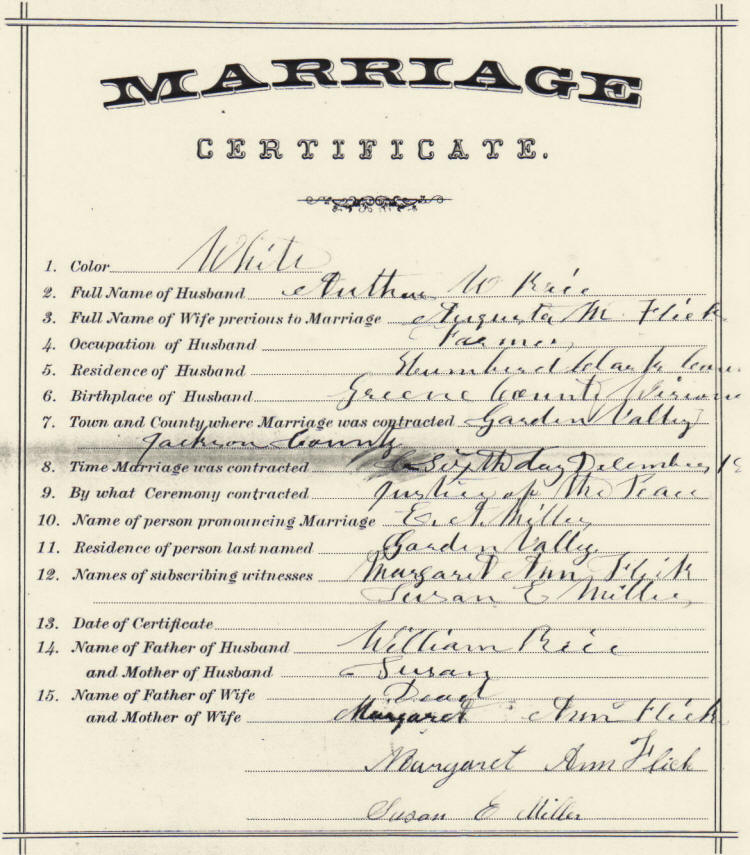 MARRIAGE
CERTIFICATE.
1. Color White
2. Full Name of Husband Arthur W Price
3. Full Name of Wife previous to Marriage Augusta M. Flick
4. Occupation of Husband Farmer
5. Residence of Husband Humbird Clark Coun
6. Birthplace of Husband Greene County
7. Town and County where Marriage was contracted Garden Valley
Jackson County
8. Time Marriage was contracted Sixth day December 18
9. By what Ceremony contracted Justice of the Peace
10. Name of person pronouncing Marriage Miller
11. Residence of person last named Garden Valley
12. Names of subscribing witnesses Margaret Ann Flick
Susan E Miller
13. Date of Certificate
14. Name of Father of Husband William Price
and Mother of Husband Susan
15. Name of Father of Wife Dead
and Mother of Wife Margaret Ann Flick
Margaret Ann Flick
Susan E Miller